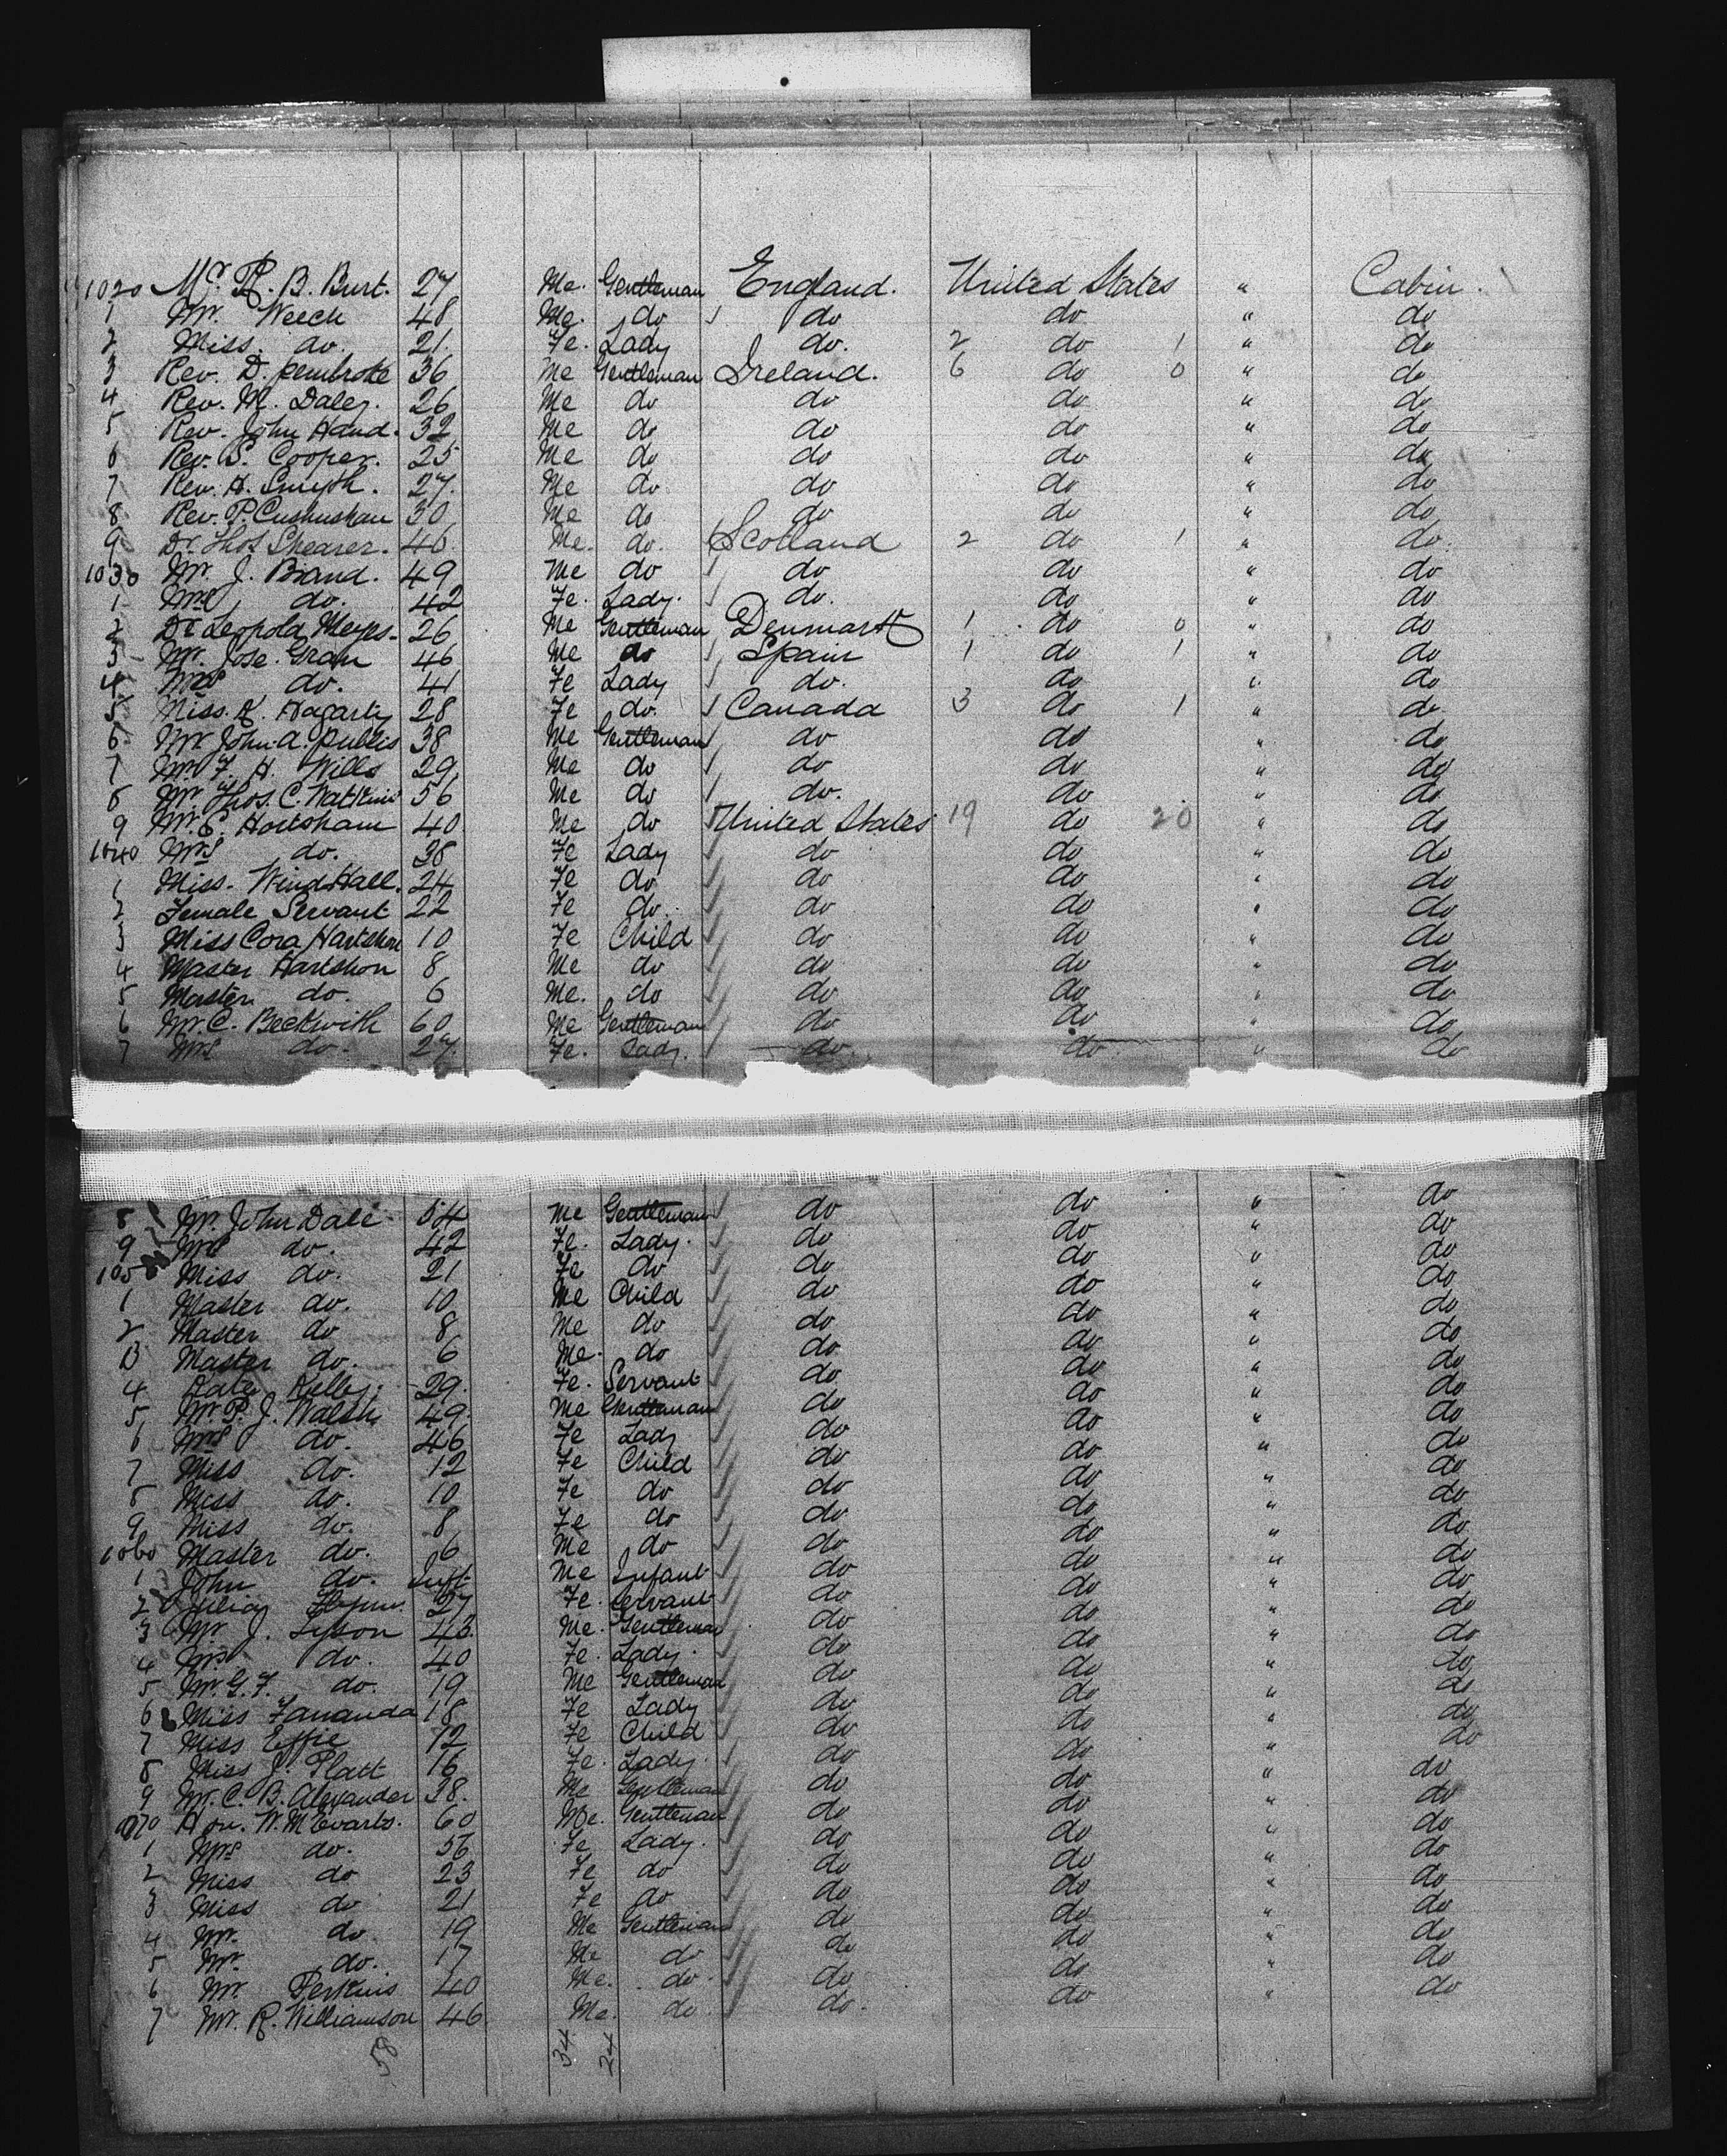 1020 Mr. R. B. Burt. 27 Me. Gentleman England. United States " Cabin.
1 Mr. Weech 48 Me. do do do " do
2 Miss. do. 21. Fe. Lady do. 2 do 1 " do
3 Rev. D. pembroke 36 Me Gentleman Ireland. 6 do 0 " do
4 Rev. M. Daley. 26 Me do do do " do
5 Rev. John Hand. 32 Me do do do " do
6 Rev. S. Cooper. 25 Me do do do " do
7 Rev. H. Smyth. 27. Me do do do " do
8 Rev. P. 30 Me do do do " do
9 Dr. Thos Shearer. 46. Me. do. Scotland 2 do 1 " do.
1030 Mr. J. Brand. 49 Me do do do " do
1 Mrs do. 42 Fe. Lady. do. do " do
2 Dr Leopold Meyes. 26 Me Gentleman Denmark 1 do 0 " do
3 Mr. Jose. Grau 46 Me do Spain 1 do 1 " do
4 Mrs do. 41 Fe Lady do. do " do
5 Miss. K. Hagarty 28 Fe do. Canada 3 do 1 " do
6 Mr John. A. 38 Me Gentleman do do " do
7 Mr F. H. Wills 29 Me do do do " do
8 Mr. Thos. C. Watkins 56 Me do do. do " do
9 Mr. C. 40 Me do United States 19 do 20 " do
1040 Mrs do. 38 Fe Lady do do " do
1 Miss. Wind Hall. 24 Fe do do do " do
2 Female Servant 22 Fe do. do do " do
3 Miss Cora Hartshon 10 Fe Child do do " do
4 Master Hartshon 8 Me do do do " do
5 Master do. 6 Me. do do do " do
6 Mr. C. Beckwith 60 Me Gentleman do do " do
7 Mrs do. 27. Fe. Lady. do. do " do
8 Mr. John Dale 54 Me Gentleman do do " do
9 Mrs do. 42 Fe. Lady. do do " do
105 Miss do. 21 Fe do do do " do
1 Master do. 10 Me Child do do " do
2 Master do 8 Me do do do " do
3 Master do. 6 Me. do do do " do
4 Kate Kelley. 29. Fe. Servant do do " do
5 Mr. P. J. Walsh 49. Me Gentleman do do " do
6 Mrs do. 46 Fe Lady do do " do
7 Miss do. 12 Fe Child do do " do
8 Miss do. 10 Fe do do do " do
9 Miss do. 8 Fe do do do " do
1060 Master do. 6 Me do do do " do
1 John do. Inft Me Infant do do " do
2 Julia 27 Fe. Servant do do " do
3 Mr J. 43. Me. Gentleman do do " do
4 Mrs do. 40 Fe. Lady. do do " do
5 Mr. G. F. do. 19 Me Gentleman do do " do
6 Miss Fananda 18 Fe Lady do do " do
7 Miss Effie 12 Fe Child do do " do
8 Miss J. Platt 16 Fe. Lady. do do " do
9 Mr. C. B. Alexander 38. Me Gentleman do do " do
1070 Hon. W. M Evarts. 60 Me. Gentleman do do " do
1 Mrs do. 56 Fe Lady. do do " do
2 Miss do 23 Fe do do do " do
3 Miss do 21 Fe do do do " do
4 Mr. do. 19 Me Gentleman do do " do
5 Mr. do. 17 Me do do do " do
6 Mr. Perkins 40 Me. do. do do " do
7 Mr. R. Williamson 46 Me. do do. do " do
58 34 24